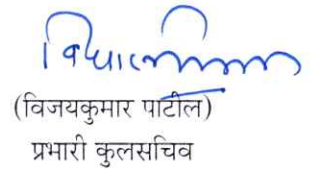 (विजयकुमार पाटील)
प्रभारी कुलसचिव